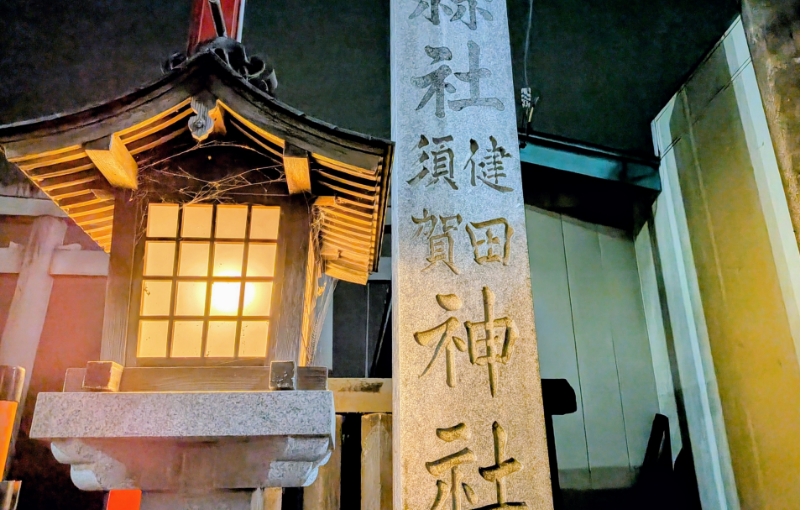 縣社
健田
須賀
神社